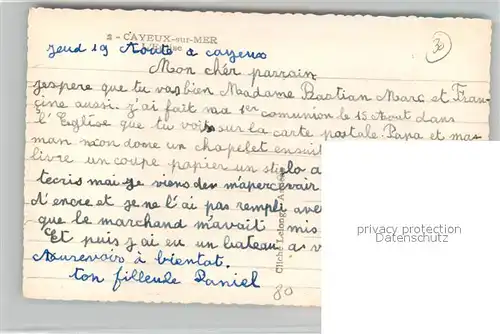 2 - CAYEUX-sur-MER
L'Eglise
30
jeud 19 Aoute a cayeux
Mon chér parrain
jespere que tu vas bien Madame Bastian Marc et Fran
çine aussi. j'ai fait ma 1er comunion le 15 Aout dans
l'Eglise que tu vois sur la carte postale. Papa et ma
man mon done un chapelet ensuit
livre un coupe papier un stylo a
tecris mai je viens den m'apercevair
d'encre et je ne l'ai pas rempli ave
que le marchand m'avait mis
Et puis j'ai eu un bateau a v
Aurevoir à bientat.
ton filleule Daniel
80
Cliché Lelong
privacy protection
Datenschutz